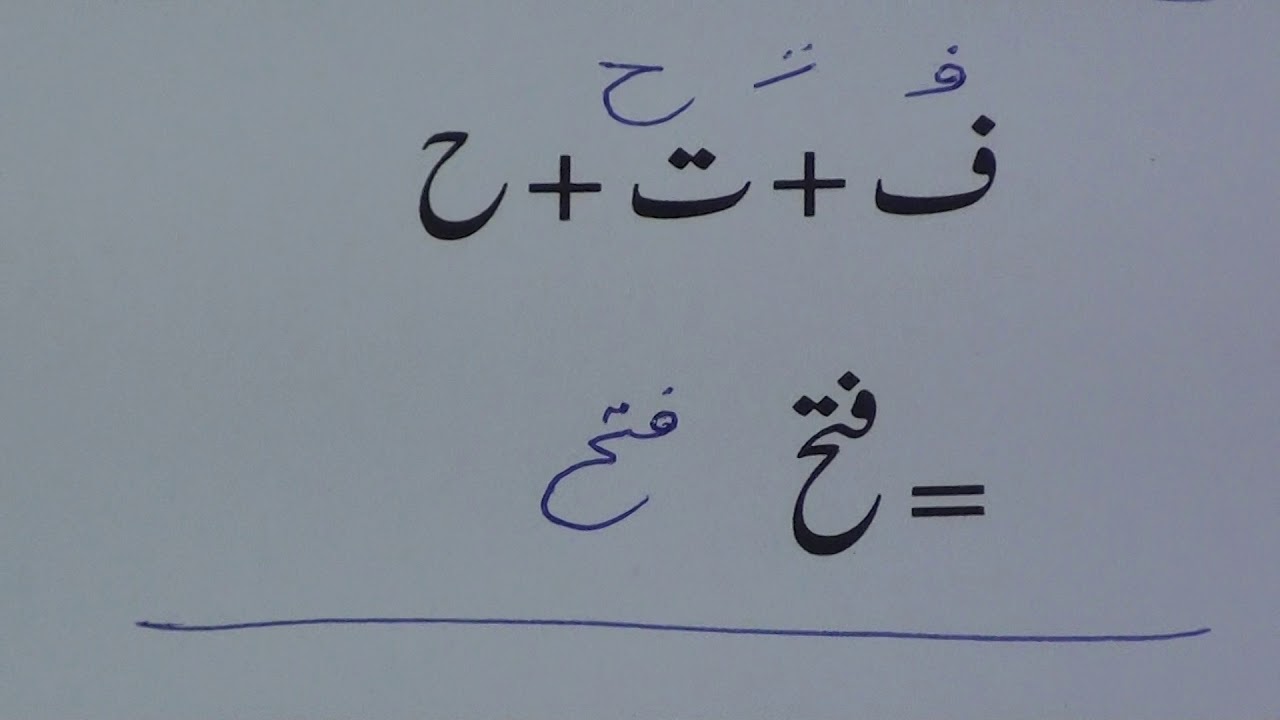 ف ت ح
ف + ت + ح
= فتح فتح